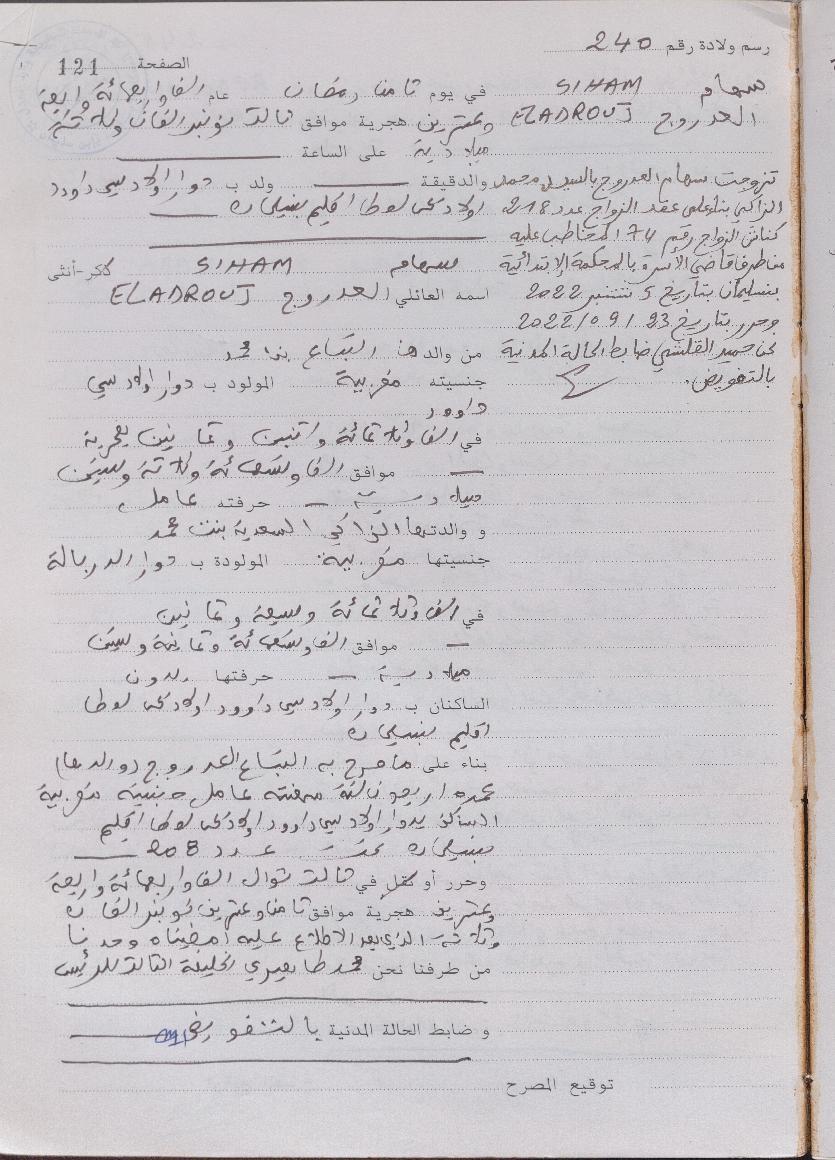 الصفحة 121
رسم ولادة رقم 240
سهام SIHAM
العدروج ELADROUJ
تزوجت سهام العدروج بالسيد محمد
الزاكي بناء على عقد الزواج عدد 218
كناش الزواج رقم 74 المخاطب عليه
من طرف قاضي الأسرة بالمحكمة الابتدائية
بنسليمان بتاريخ 5 شتنبر 2022
وحرر بتاريخ 23/09/2022
نحن حميد القلشي ضابط الحالة المدنية
بالتفويض.
في يوم ثامن رمضان عام الف واربعمائة واربعة
وعشرين هجرية موافق ثالث نونبر الفان وثلاثة
ميلادية على الساعة
والدقيقة ولد ب دوار اولاد سي داود
اولاد يحي لوطا اقليم بنسليمان
سهام SIHAM ذكر-أنثى
اسمه العائلي العدروج ELADROUJ
من والدها البتاع بن محمد
جنسيته مغربية المولود ب دوار اولاد سي
داوود
في الف وثلاثمائة واثنين وثمانين هجرية
موافق الف وتسعمائة وثلاثة وستين
ميلادية حرفته عامل
و والدتها الزاكي السعدية بنت محمد
جنسيتها مغربية المولودة ب دوار الدربالة
في الف وثلاثمائة وسبعة وثمانين
موافق الف وتسعمائة وثمانية وستين
ميلادية حرفتها بدون
الساكنان ب دوار اولاد سي داوود اولاد يحي لوطا
اقليم بنسليمان
بناء على ما صرح به البتاع العدروج (والدها)
عمره اربعون سنة مهنته عامل جنسيته مغربية
الساكن بدوار اولاد سي داوود اولاد يحي لوطا اقليم
بنسليمان تحت عدد 208
وحرر أو نقل في ثالث شوال الف واربعمائة واربعة
وعشرين هجرية موافق ثامن وعشرين نونبر الفان
وثلاثة الذي بعد الاطلاع عليه امضيناه وحدنا
من طرفنا نحن محمد الخليفة الثالث للرئيس
و ضابط الحالة المدنية بالتفويض
توقيع المصرح